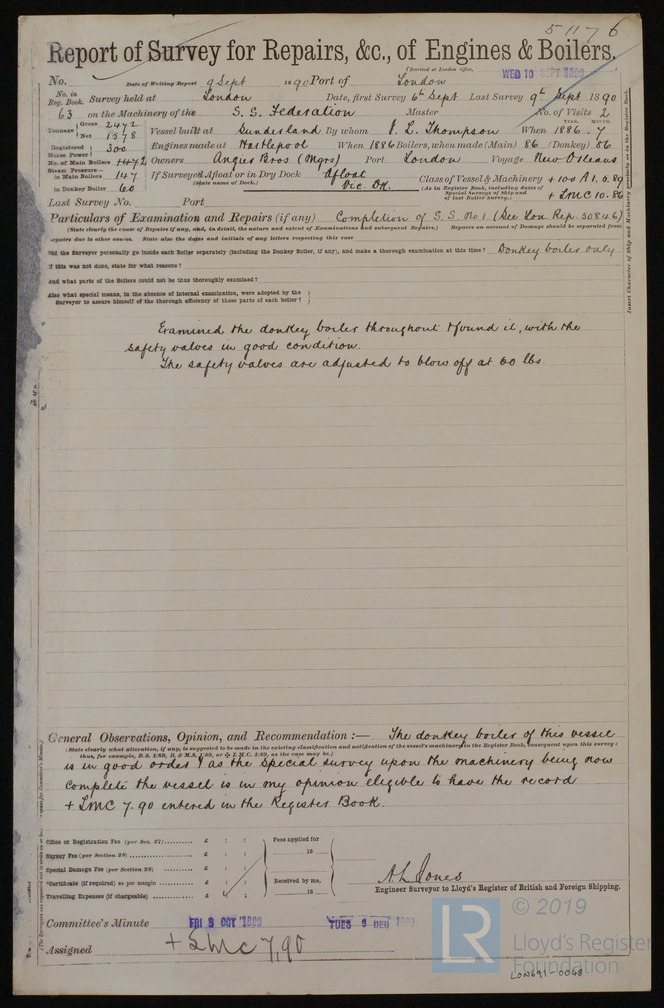 51176
Report of Survey for Repairs, &c., of Engines & Boilers.
(Received at London Office, WED 10 SEPT 1890
No. Date of Writing Report 9 Sept 1890 Port of London
No. in Reg. Book. Survey held at London Date, first Survey 6th Sept Last Survey 9th Sept 1890
63 on the Machinery of the S. S. Federation Master No. of Visits 2
Tonnage Gross 2472 Net 1578 Vessel built at Sunderland By whom J. L. Thompson When 1886 - 7
YEAR. MONTH.
Registered Horse Power 300 Engines made at Hartlepool When 1886 Boilers, when made (Main) 86 (Donkey) 86
No. of Main Boilers Owners Angier Bros (Mgrs) Port London Voyage New Orleans
Steam Pressure in Main Boilers 147 If Surveyed Afloat or in Dry Dock Afloat Class of Vessel & Machinery + 100 A 1.
(State name of Dock.) Vic. Dk. (As in Register Book, including dates of Special Surveys of Ship and of last Boiler Survey.)
in Donkey Boiler 60 + LMC 10.86
Last Survey No. Port
Particulars of Examination and Repairs (if any) Completion of S. S. No 1 (See Lon. Rep. 50846)
(State clearly the cause of Repairs if any, and, in detail, the nature and extent of Examinations and subsequent Repairs.) Repairs on account of Damage should be separated from
repairs due to other causes. State also the dates and initials of any letters respecting this case
Did the Surveyor personally go inside each Boiler separately (including the Donkey Boiler, if any), and make a thorough examination at this time? Donkey boiler only
If this was not done, state for what reasons?
And what parts of the Boilers could not be thus thoroughly examined?
Also what special means, in the absence of internal examination, were adopted by the
Surveyor to assure himself of the thorough efficiency of those parts of each boiler?
Insert Character of Ship and Machinery precisely as in the Register Book.
Examined the donkey boiler throughout & found it, with the
safety valves in good condition.
The safety valves are adjusted to blow off at 60 lbs.
General Observations, Opinion, and Recommendation :— The donkey boiler of this vessel
(State clearly what alteration, if any, is suggested to be made in the existing classification and notification of the vessel's machinery in the Register Book, consequent upon this survey;
thus, for example, B.S. 1/89, B. & M.S. 1/89, or L.M.C. 1/89, as the case may be.)
is in good order & as the special survey upon the machinery being now
complete the vessel is in my opinion eligible to have the record
+ LMC 7.90 entered in the Register Book.
Office or Registration Fee (per Sec. 27) £ : : Fees applied for
Survey Fee (per Section 28) £ : : 18
Special Damage Fee (per Section 28) £ : :
*Certificate (if required) as per margin £ : : Received by me,
Travelling Expenses (if chargeable) £ : : 18
A L Jones
Engineer Surveyor to Lloyd's Register of British and Foreign Shipping.
Committee's Minute FRI 3 OCT 1890 TUES 9 DEC 1890
Assigned + LMC 7,90
© 2019
LR
Lloyd's Register
Foundation
LON691-0048